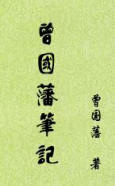 曾國藩筆記
曾国藩 著